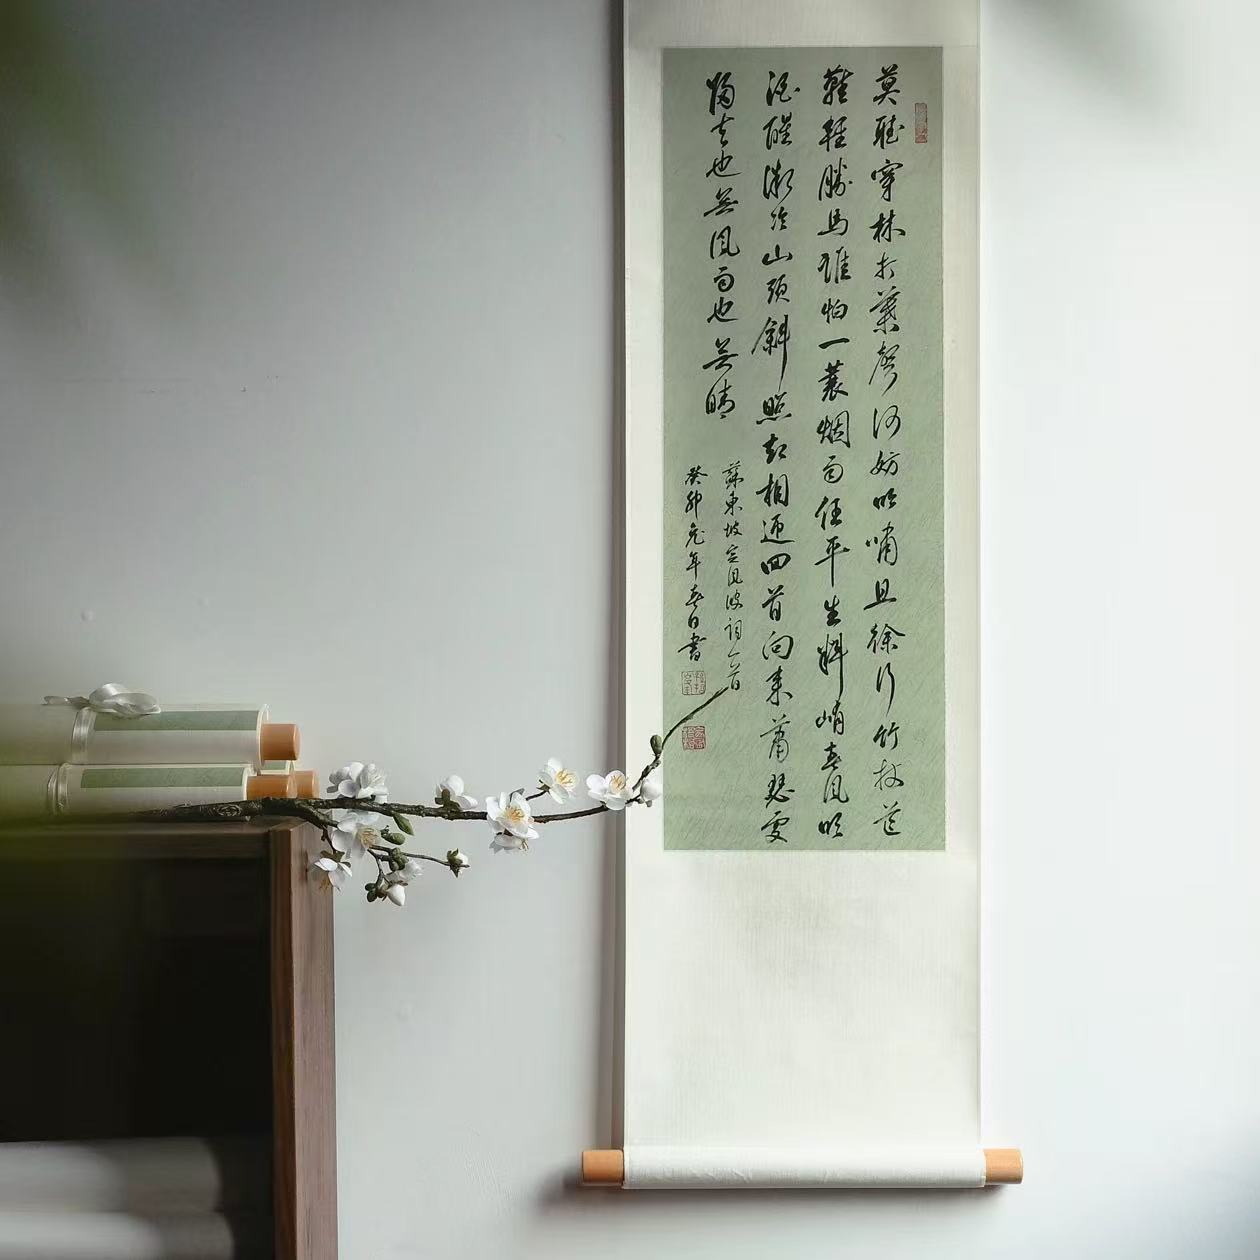 莫聽穿林打葉聲何妨吟嘯且徐行竹杖芒
鞋輕勝馬誰怕一蓑烟雨任平生料峭春風吹
酒醒微冷山頭斜照却相迎回首向來蕭瑟處
歸去也無風雨也無晴
蘇東坡定風波詞一首
癸卯元年春日書